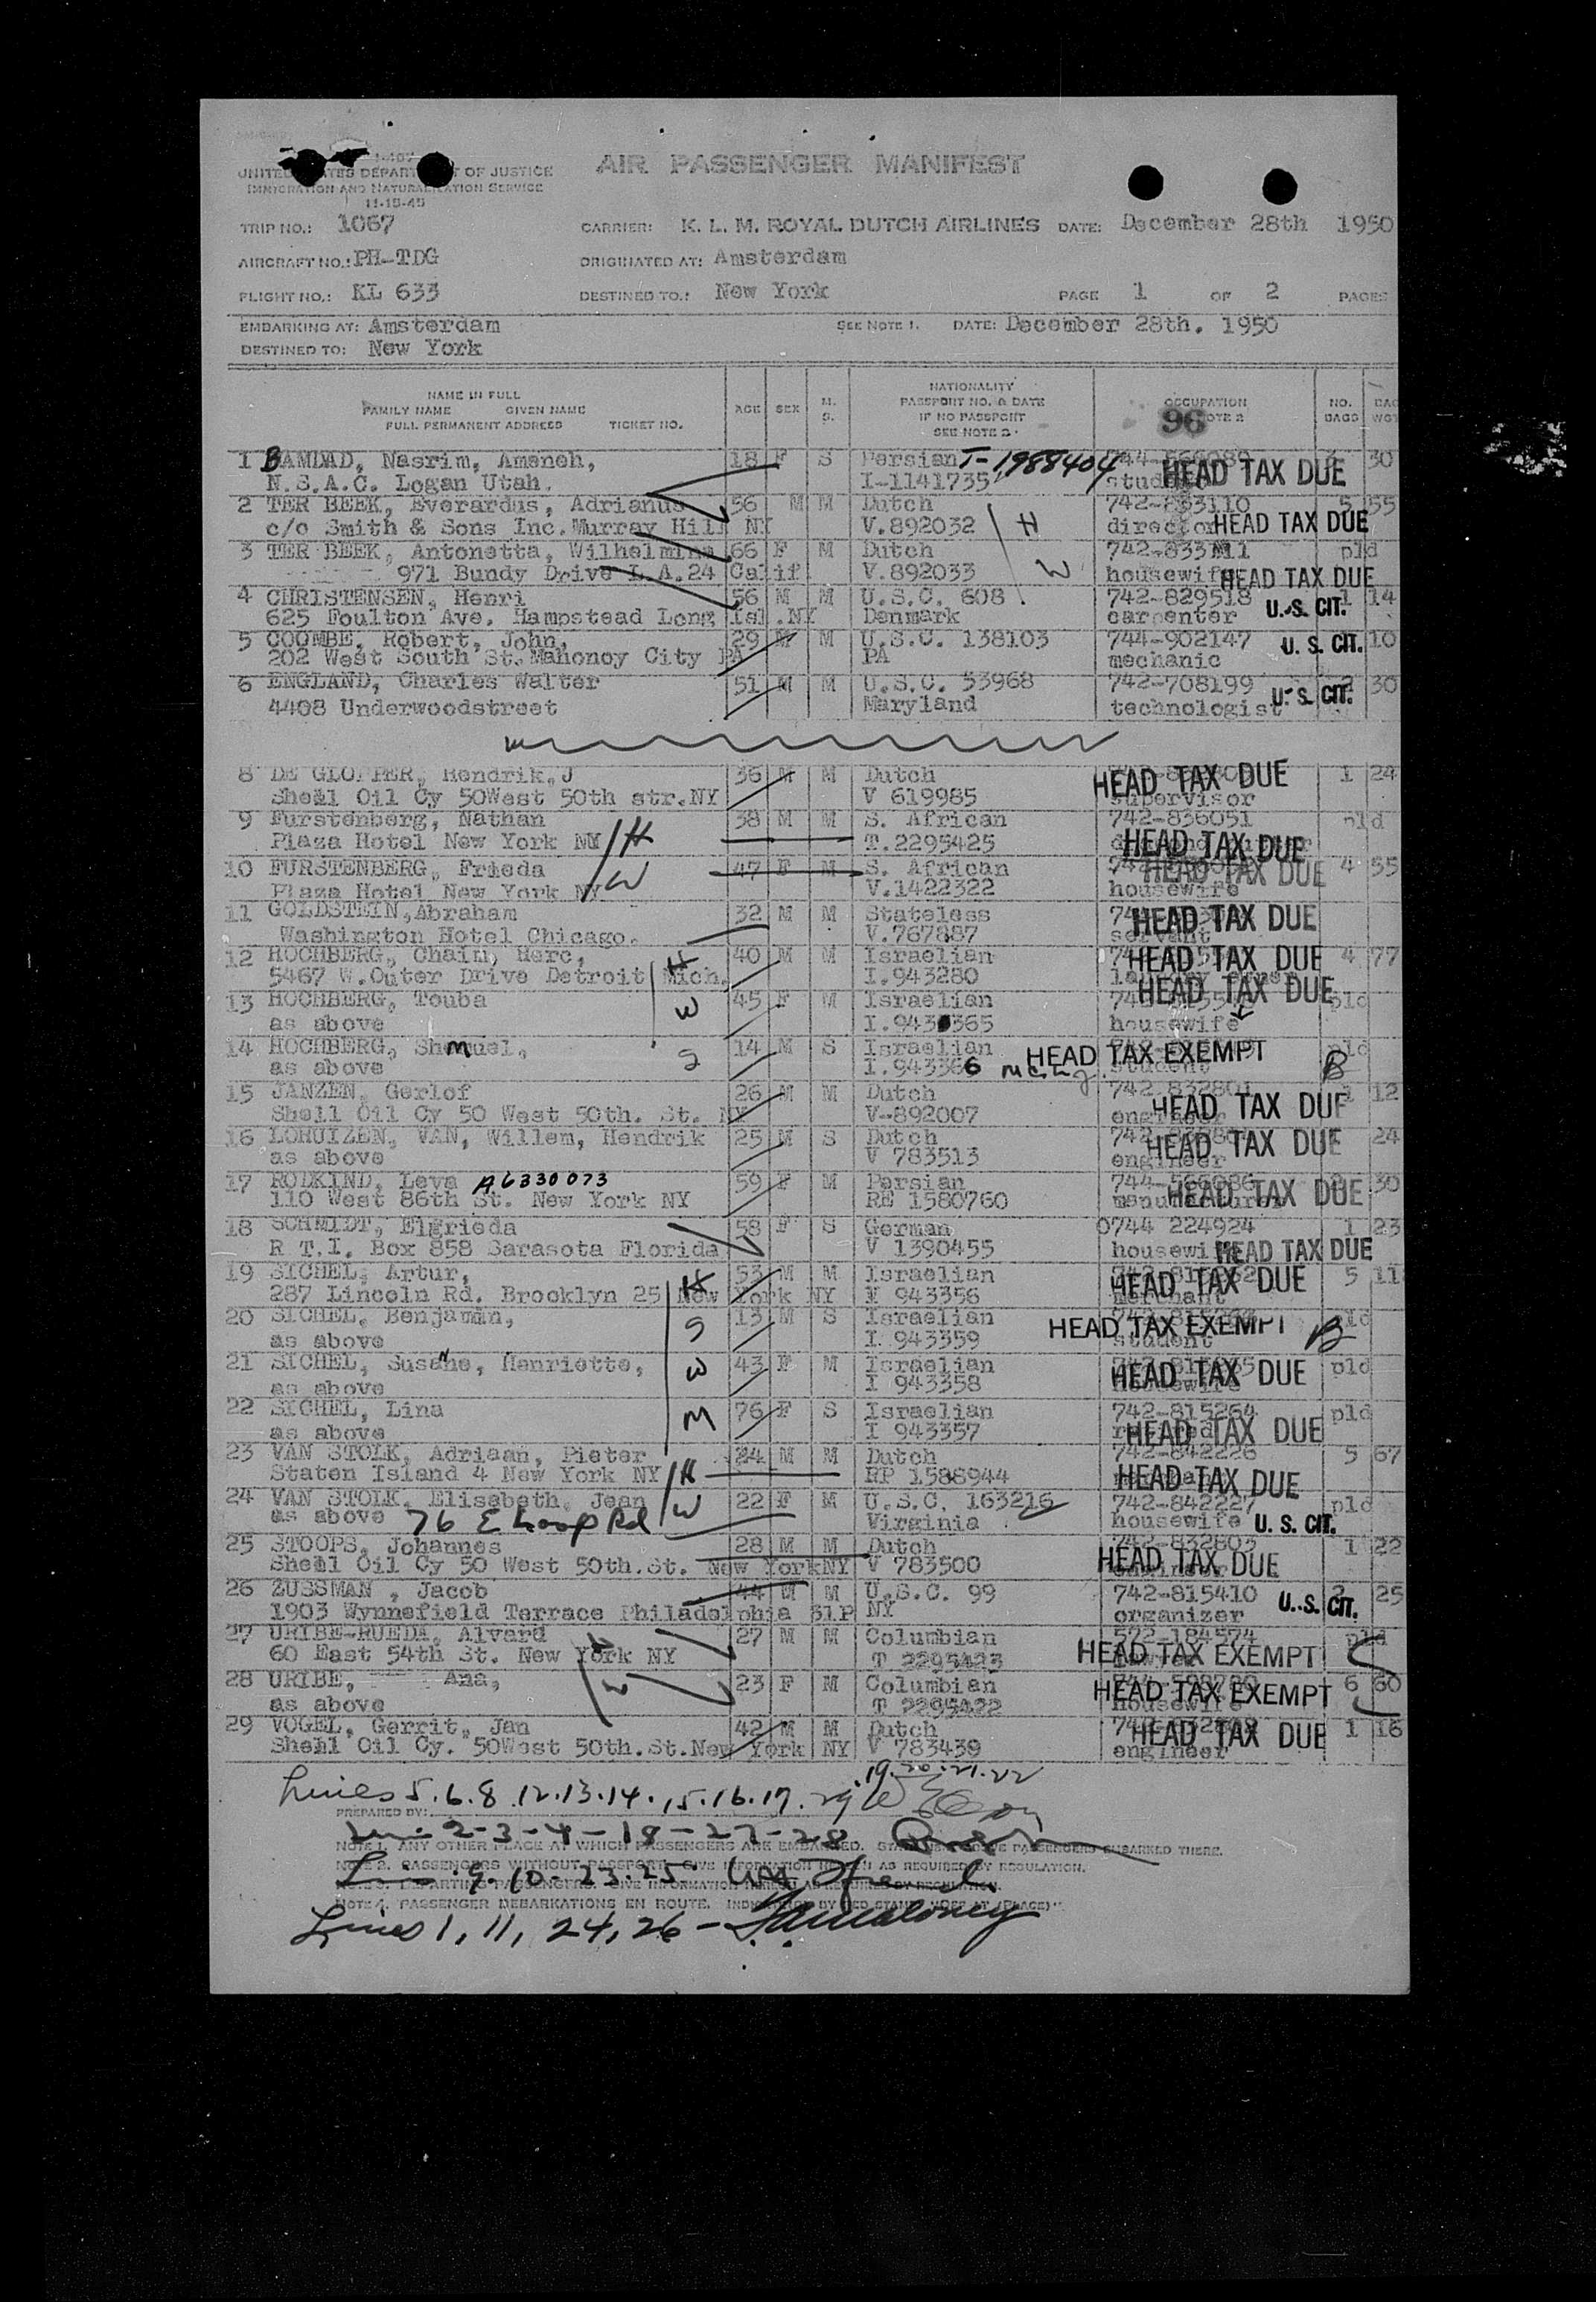 UNITED STATES DEPARTMENT OF JUSTICE
IMMIGRATION AND NATURALIZATION SERVICE
11-15-45
AIR PASSENGER MANIFEST
TRIP NO.: 1067 CARRIER: K. L. M. ROYAL DUTCH AIRLINES DATE: December 28th 1950
AIRCRAFT NO.: PH-TDG ORIGINATED AT: Amsterdam
FLIGHT NO.: KL 633 DESTINED TO.: New York PAGE 1 OF 2 PAGES
EMBARKING AT: Amsterdam SEE NOTE 1. DATE: December 28th. 1950
DESTINED TO: New York
NAME IN FULL
FAMILY NAME GIVEN NAME
FULL PERMANENT ADDRESS TICKET NO.
AGE SEX M. S.
NATIONALITY
PASSPORT NO. & DATE
IF NO PASSPORT
SEE NOTE 2
OCCUPATION
96 NOTE 2
NO. BAGS
BAG WGT
1 BAMDAD, Nasrim, Ameneh, 18 F S Persian T-1988404 30
N.S.A.C. Logan Utah. I-1141735 student HEAD TAX DUE
2 TER BEEK, Everardus, Adrianus 56 M M Dutch 742-833110 5 55
c/o Smith & Sons Inc. Murray Hill NY V.892032 H director HEAD TAX DUE
3 TER BEEK, Antonetta, Wilhelmina 66 F M Dutch 742-833111 pld
971 Bundy Drive L.A.24 Calif V.892033 W housewife HEAD TAX DUE
4 CHRISTENSEN, Henri 56 M M U.S.C. 608 742-829518 1 14
625 Foulton Ave. Hampstead Long Isl.NY Denmark carpenter U.S. CIT.
5 COOMBE, Robert, John, 29 M M U.S.C. 138103 744-902147 U.S. CIT. 10
202 West South St. Mahonoy City PA PA mechanic
6 ENGLAND, Charles Walter 51 M M U.S.C. 53968 742-708199 30
4408 Underwoodstreet Maryland technologist U.S. CIT.
8 DE GLOPPER, Hendrik,J 36 M M Dutch HEAD TAX DUE 1 24
Shell Oil Cy 50West 50th str.NY V 619985 supervisor
9 Furstenberg, Nathan 38 M M S. African 742-836051 pld
Plaza Hotel New York NY H T.2295425 HEAD TAX DUE
10 FURSTENBERG, Frieda 47 F M S. African HEAD TAX DUE 4 55
Plaza Hotel New York NY W V.1422322 housewife
11 GOLDSTEIN,Abraham 32 M M Stateless HEAD TAX DUE
Washington Hotel Chicago. V.767887 servant
12 HOCHBERG, Chain, Herc, H 40 M M Israelian HEAD TAX DUE 4 77
5467 W.Outer Drive Detroit Mich. I.943280
13 HOCHBERG, Touba W 45 F M Israelian HEAD TAX DUE pld
as above I.943365 housewife
14 HOCHBERG, Shemuel, S 14 M S Israelian HEAD TAX EXEMPT pld
as above I.943366 student B
15 JANZEN, Gerlof 26 M M Dutch 742-832801 1 12
Shell Oil Cy 50 West 50th. St. NY V-892007 engineer HEAD TAX DUE
16 LOHUIZEN, VAN, Willem, Hendrik 25 M S Dutch HEAD TAX DUE 24
as above V 783513 engineer
17 RODKIND, Leva A6330073 59 F M Persian 744-566086 30
110 West 86th St. New York NY RE 1580760 manufacturer HEAD TAX DUE
18 SCHMIDT, Elfrieda 58 F S German 0744 224924 1 23
R T.I. Box 858 Sarasota Florida V 1390455 housewife HEAD TAX DUE
19 SICHEL, Artur, H 53 M M Israelian HEAD TAX DUE 5 11
287 Lincoln Rd. Brooklyn 25 New York NY I 943356 merchant
20 SICHEL, Benjamin, S 13 M S Israelian HEAD TAX EXEMPT pld
as above I. 943359 student B
21 SICHEL, Susanne, Henriette, W 43 F M Israelian HEAD TAX DUE pld
as above I 943358 housewife
22 SICHEL, Lina M 76 F S Israelian 742-815264 pld
as above I 943357 HEAD TAX DUE
23 VAN STOLK, Adriaan, Pieter 24 M M Dutch 742-842226 5 67
Staten Island 4 New York NY H RP 1588944 HEAD TAX DUE
24 VAN STOLK, Elisabeth, Jean W 22 F M U.S.C. 163216 742-842227 pld
as above 76 E Loop Rd Virginia housewife U. S. CIT.
25 STOOPS, Johannes 28 M M Dutch 742-832803 1 22
Shell Oil Cy 50 West 50th.St. New YorkNY V 783500 HEAD TAX DUE
26 ZUSSMAN , Jacob 44 M M U.S.C. 99 742-815410 2 25
1903 Wynnefield Terrace Philadelphia 31P NY organizer U.S. CIT.
27 URIBE-RUEDA, Alvard 27 M M Columbian 572-184574 pld
60 East 54th St. New York NY H T 2295423 HEAD TAX EXEMPT
28 URIBE, Ana, W 23 F M Columbian HEAD TAX EXEMPT 6 60
as above T 2295422 housewife
29 VOGEL, Gerrit, Jan 42 M M Dutch HEAD TAX DUE 1 16
Shell Oil Cy. 50West 50th.St.New York NY V 783439 engineer
19.20.21.22
Lines 5.6.8.12.13.14.15.16.17.29
PREPARED BY:
2-3-4-18-27-28
NOTE 1. ANY OTHER PLACE AT WHICH PASSENGERS ARE EMBARKED. PASSENGERS EMBARKED THERE.
NOTE 2. PASSENGERS WITHOUT PASSPORT, GIVE INFORMATION AS REQUIRED BY REGULATION.
9.10.23.25
NOTE 4. PASSENGER DEBARKATIONS EN ROUTE.
Lines 1, 11, 24, 26 -